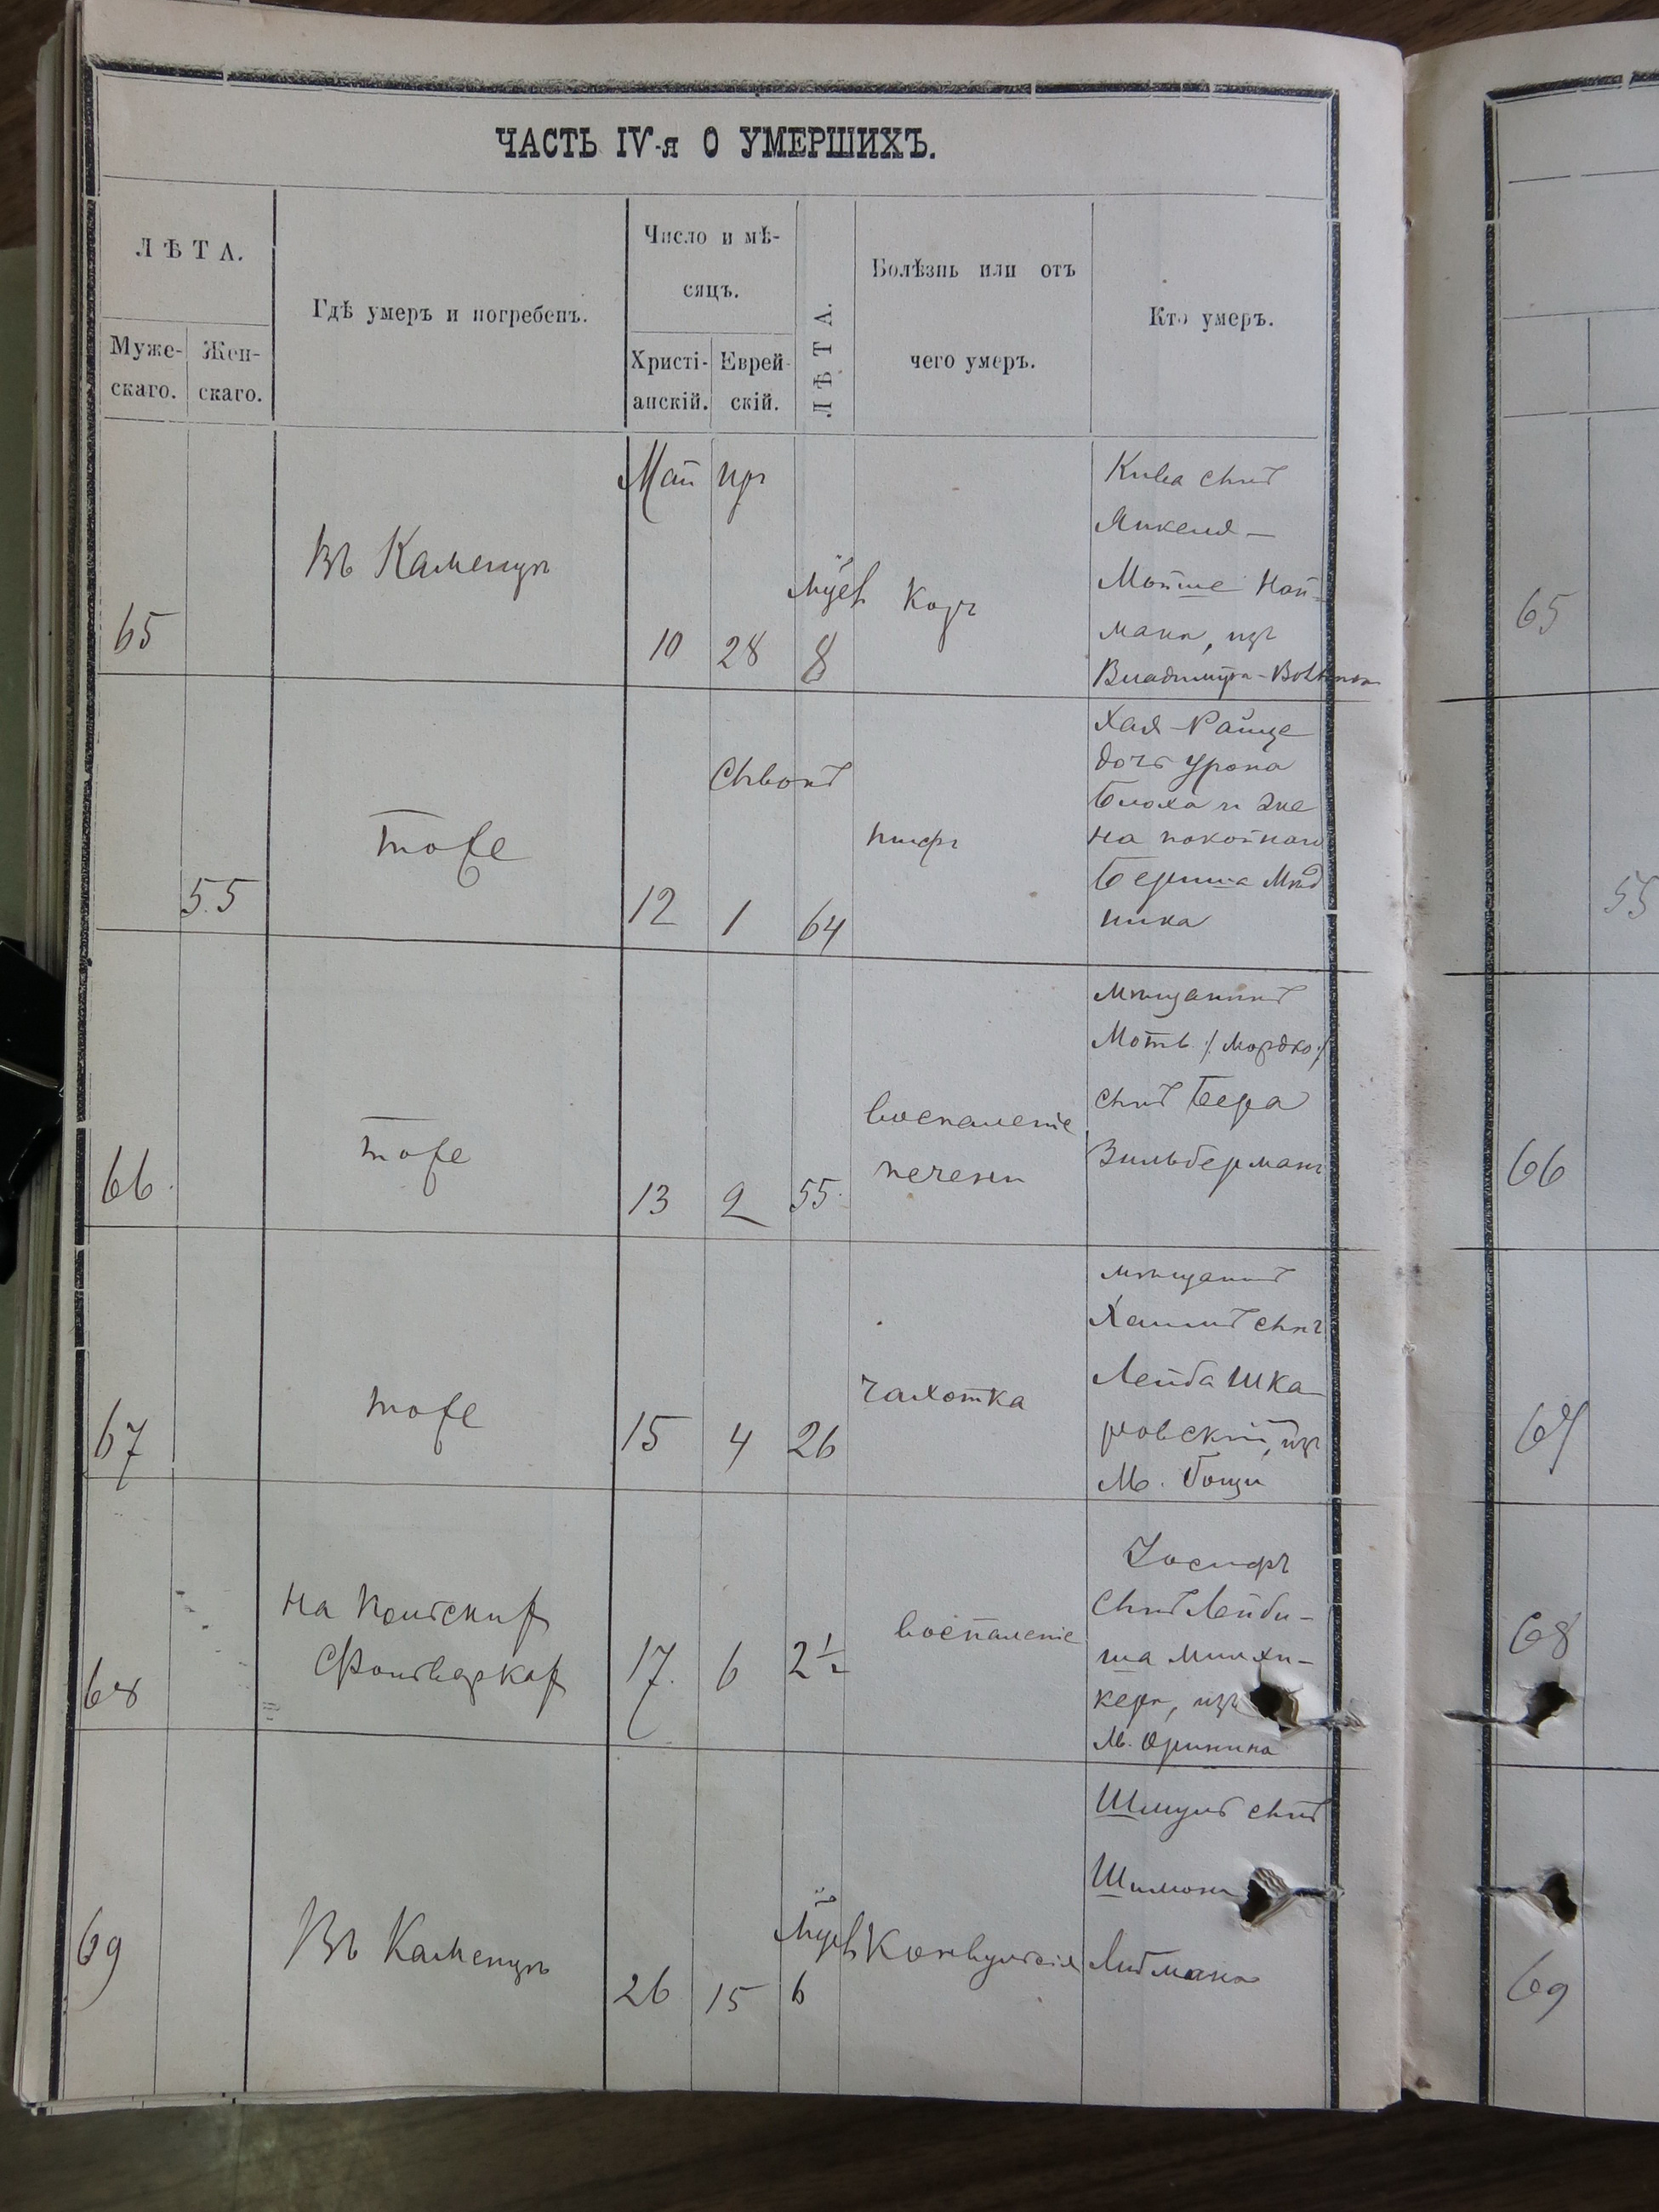 ЧАСТЬ IV-я О УМЕРШИХЪ.
ЛѢТА.
Муже-
скаго.
Жен-
скаго.
Гдѣ умеръ и погребенъ.
Число и мѣ-
сяцъ.
Христі-
анскій.
Еврей-
скій.
ЛѢТА.
Болѣзнь или отъ
чего умеръ.
Кто умеръ.
65
Въ Каменцѣ
Май
10
Иръ
28
мѣс
8
Коръ
Кива сынъ
Янкеля-
Мойше Най-
мана, изъ
Владиміра-Волынск
55
тоже
12
Сывонъ
1
64
тифъ
Хая-Райце
дочь Урона
Блоха и же
на покойнаго
Бериша Мѣд
ника
66
тоже
13
2
55
воспаленіе
печени
мѣщанинъ
Мотъ /:Мордко:/
сынъ Бера
Зильберманъ
67
тоже
15
4
26
чахотка
мѣщанинъ
Хаимъ сынъ
Лейба Шка-
ровскій, изъ
м. Гощи
68
на Польскихъ
Фольваркахъ
17
6
2 ½
воспаленіе
Іосифъ
сынъ Лейби-
ша
кера, изъ
м. Оринина
69
Въ Каменцѣ
26
15
мѣс
6
Конвульсія
Шмуль сынъ
Шимона
Литмана
65
55
66
67
68
69